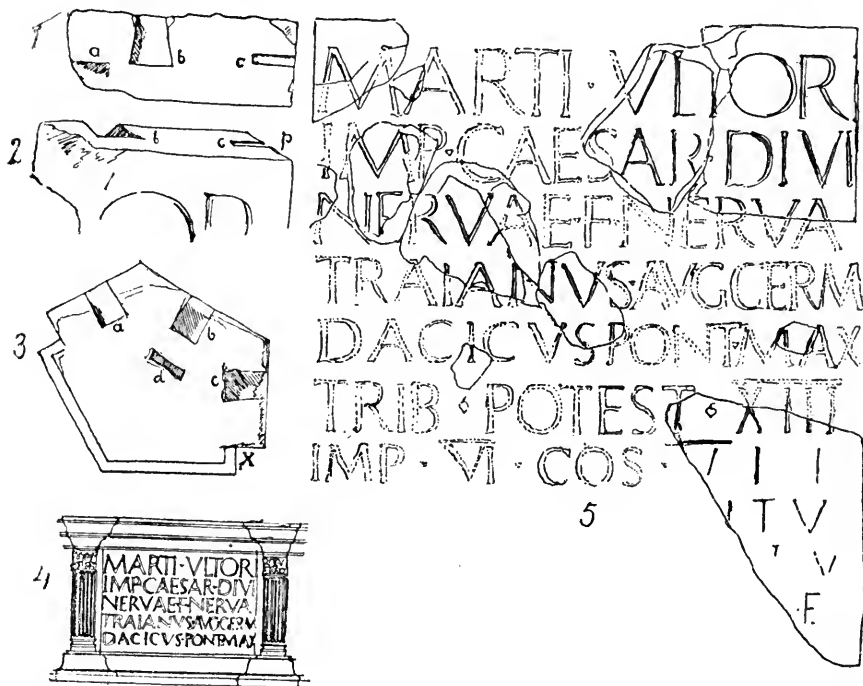 a b c
2
b c p
O D
3
a b
d c
X
4
MARTI·VLTOR
IMP·CAESAR·DIVI
NERVAE·F·NERVA
TRAIANVS·AVG·GERM
DACICVS·PONT·MAX
MARTI · VLTOR
IMP·CAESAR·DIVI
NERVAE·F·NERVA
TRAIANVS·AVG·GERM
DACICVS·PONT·MAX
TRIB · POTEST · XIII
IMP · VI · COS · V I I
I T V
V
·F·
5